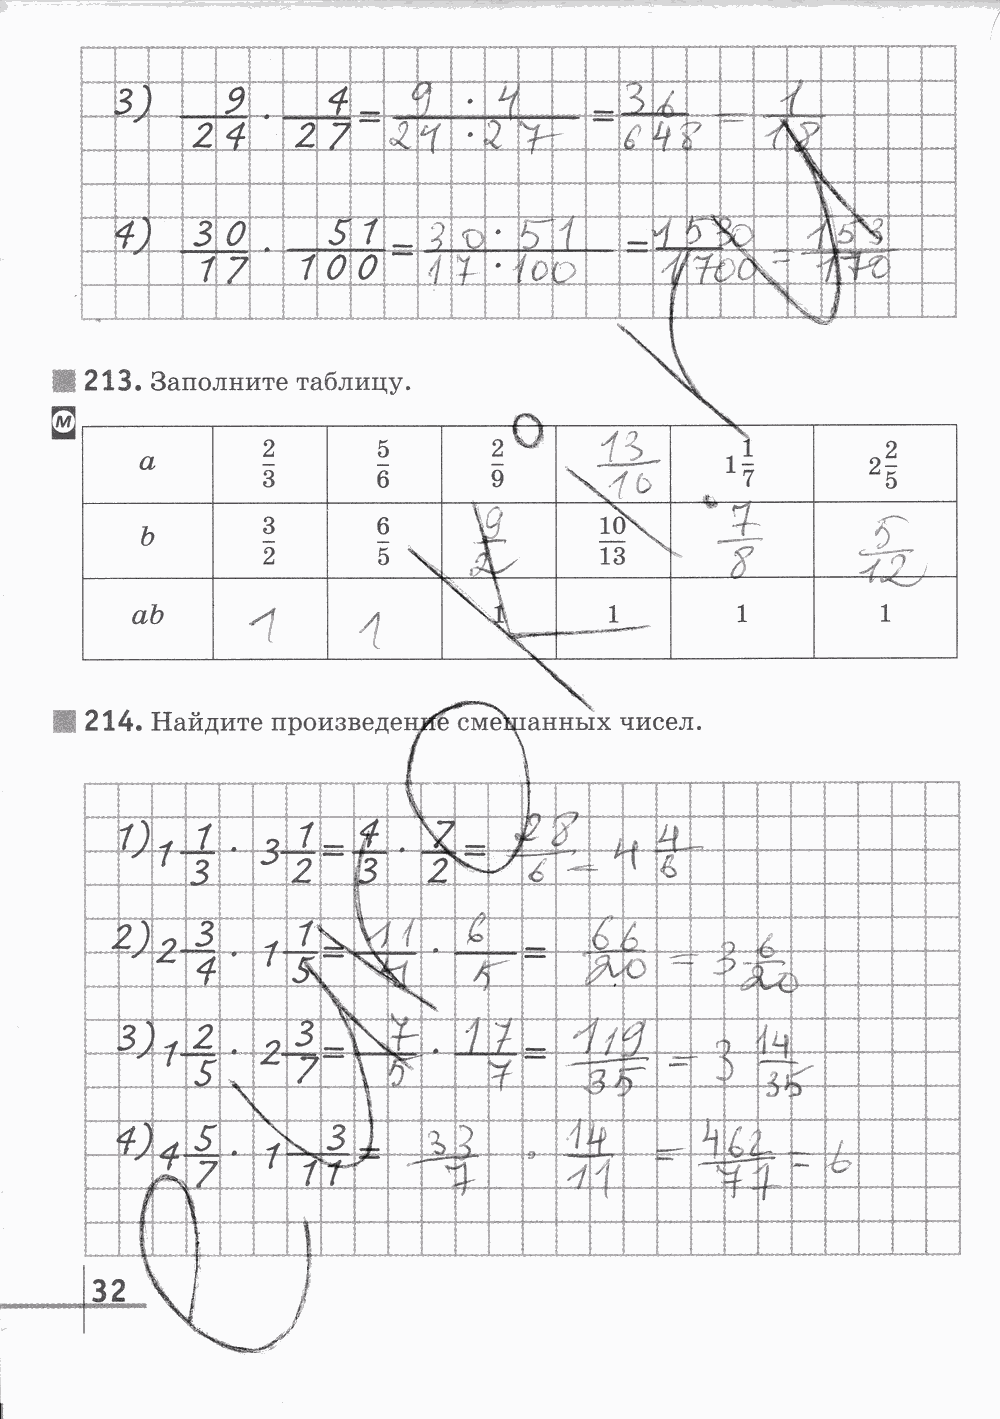 3) 9/24 · 4/27 = 9 · 4/24 · 27 = 36/648 = 1/18
4) 30/17 · 51/100 = 30 · 51/17 · 100 = 1530/1700 = 153/170
213. Заполните таблицу.
М
a 2/3 5/6 2/9 13/10 1 1/7 2 2/5
b 3/2 6/5 9/2 10/13 7/8 5/12
ab 1 1 1 1 1 1
214. Найдите произведение смешанных чисел.
1) 1 1/3 · 3 1/2 = 4/3 · 7/2 = 28/6 = 4 4/6
2) 2 3/4 · 1 1/5 = 11/4 · 6/5 = 66/20 = 3 6/20
3) 1 2/5 · 2 3/7 = 7/5 · 17/7 = 119/35 = 3 14/35
4) 4 5/7 · 1 3/11 = 33/7 · 14/11 = 462/77 = 6
32